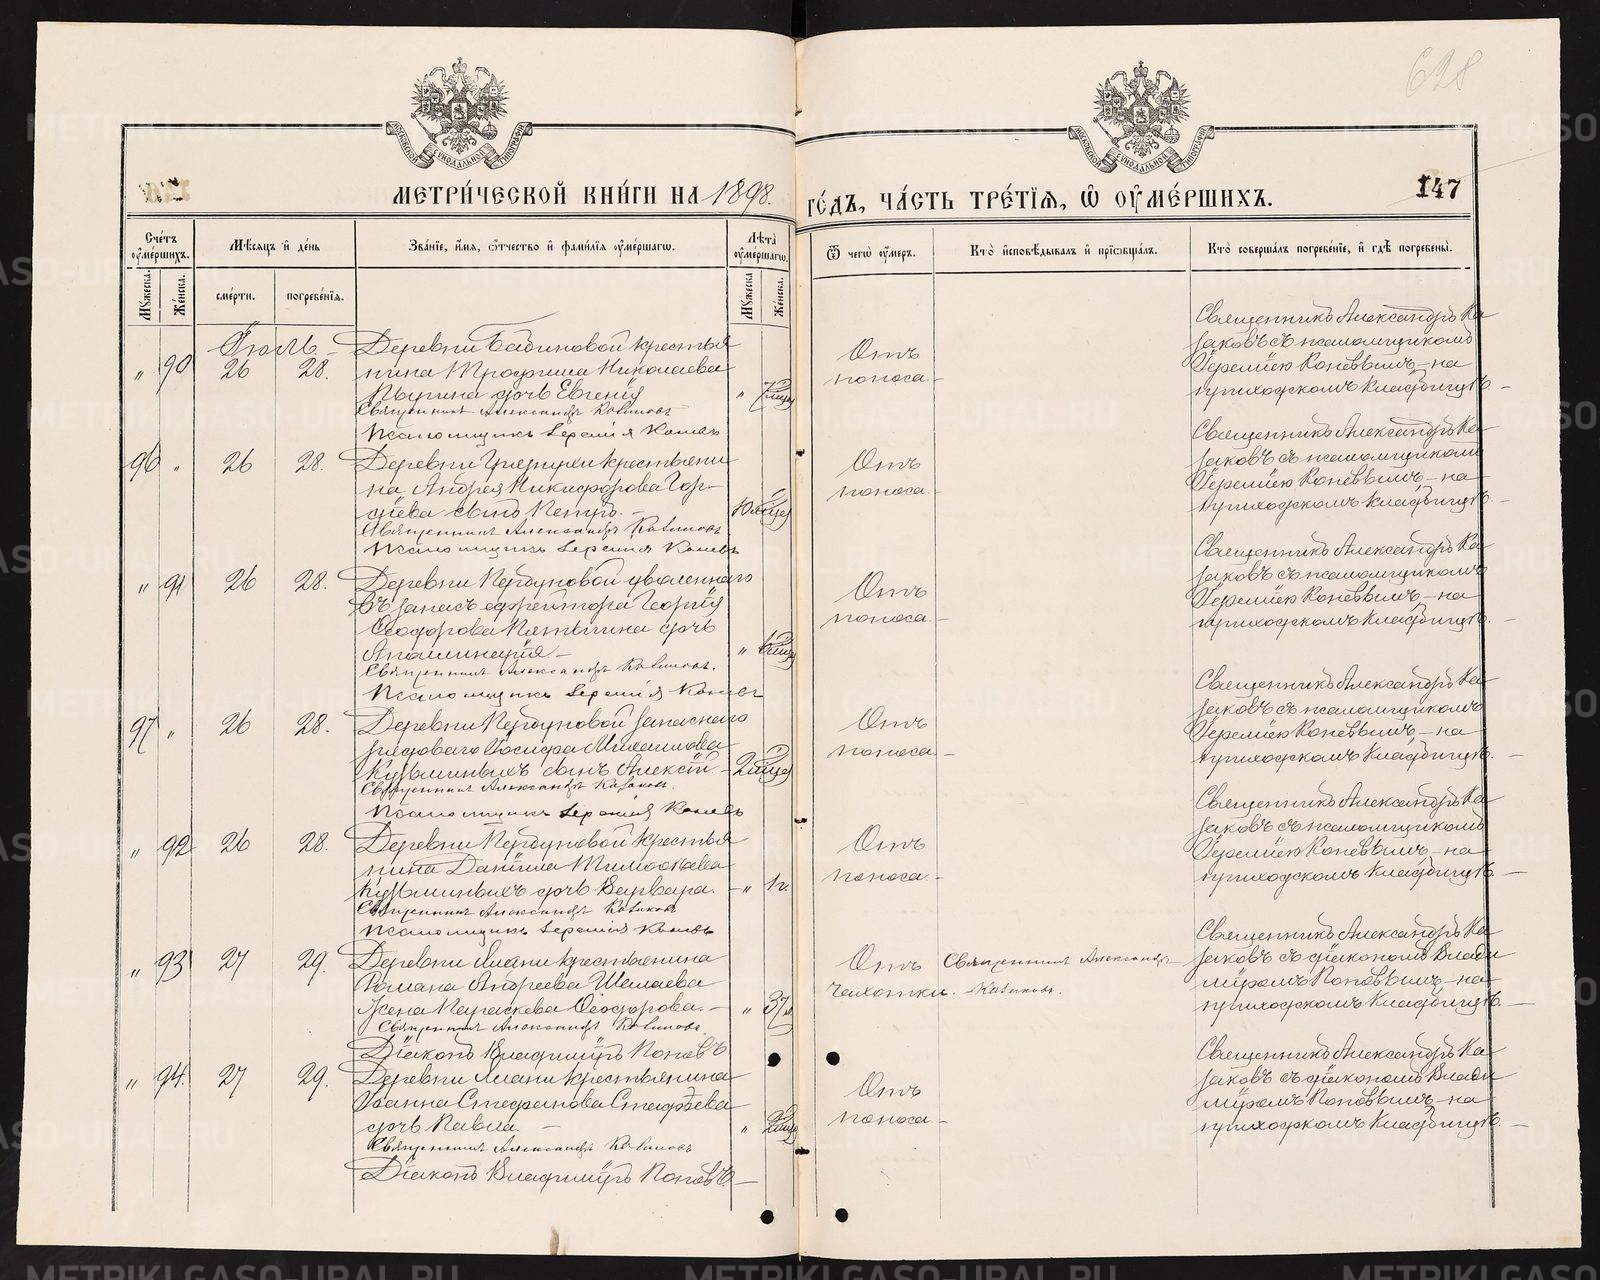 628
147
МЕТРИ́ЧЕСКОЙ КНИ́ГИ НА 1898.
ГО́ДЪ, ЧА́СТЬ ТРЕ́ТІѦ, Ѡ҆ ОУ҆МЕ́РШИХЪ.
Сче́тъ оу҆ме́ршихъ.
Мѣ́сѧцъ и҆ де́нь
Зва́нїе, и҆́мѧ, ѻ҆́тчество и҆ фами́лїѧ оу҆ме́ршагѡ.
Лѣ́та оу҆ме́ршагѡ.
Ѿ чегѡ̀ оу҆́меръ.
Кто̀ и҆сповѣ́дывалъ и҆ прїѡбща́лъ.
Кто̀ соверша́лъ погребе́нїе, и҆ гдѣ̀ погребены̀.
Мꙋ́жеска.
Же́нска.
сме́рти.
погребе́нїѧ.
Мꙋ́жеска
Же́нска.
Іюль.
" 90 26 28.
Деревни Бабиновой крестья
нина Трофима Николаева
дочь Евгенія
Священникъ Александръ Казаковъ
Псаломщикъ Іеремія Коневъ
Отъ
поноса.
Священникъ Александръ Ка
заковъ съ псаломщикомъ
Іереміею Коневымъ – на
приходскомъ кладбищѣ. –
96 " 26 28.
Деревни Грязнухи крестьяни
на Андрея Никифорова Гор-
дѣева сынъ Петръ. –
Священникъ Александръ Казаковъ
Псаломщикъ Іеремія Коневъ
Отъ
поноса. –
Священникъ Александръ Ка
заковъ съ псаломщикомъ
Іереміею Коневымъ – на
приходскомъ кладбищѣ. –
" 91 26 28.
уволеннаго
въ запасъ ефрейтора Георгія
Ѳеодорова дочь
Аполлинарія –
Священникъ Александръ Казаковъ.
Псаломщикъ Іеремія Коневъ
Отъ
поноса –
Священникъ Александръ Ка
заковъ съ псаломщикомъ
Іереміею Коневымъ – на
приходскомъ кладбищѣ. –
97 " 26 28.
запаснаго
рядоваго Іосифа Михаилова
Кузьминыхъ сынъ Алексій –
Священникъ Александръ Казаковъ.
Псаломщикъ Іеремія Коневъ
Отъ
поноса –
Священникъ Александръ Ка
заковъ съ псаломщикомъ
Іереміею Коневымъ – на
приходскомъ кладбищѣ. –
" 92 26 28.
крестья
нина Даніила Тимоѳеева
Кузьминыхъ дочь Варвара. – " 1 г.
Священникъ Александръ Казаковъ
Псаломщикъ Іеремія Коневъ
Отъ
поноса. –
Священникъ Александръ Ка
заковъ съ псаломщикомъ
Іереміею Коневымъ – на
приходскомъ кладбищѣ. –
" 93 27 29.
Деревни крестьянина
Романа Андреева Шемаева
жена Параскева Ѳеодорова. – " 37
Священникъ Александръ Казаковъ.
Діаконъ Владиміръ Поповъ
Отъ
чахотки.
Священникъ Александръ
Казаковъ.
Священникъ Александръ Ка
заковъ съ діакономъ Влади
міромъ Поповымъ – на
приходскомъ кладбищѣ. –
" 94. 27 29.
Деревни крестьянина
Іоанна Стефанова
дочь Павла –
Священникъ Александръ Казаковъ
Діаконъ Владиміръ Поповъ. –
Отъ
поноса –
Священникъ Александръ Ка
заковъ съ діакономъ Влади
міромъ Поповымъ – на
приходскомъ кладбищѣ. –
METRIKI.GASO-URAL.RU